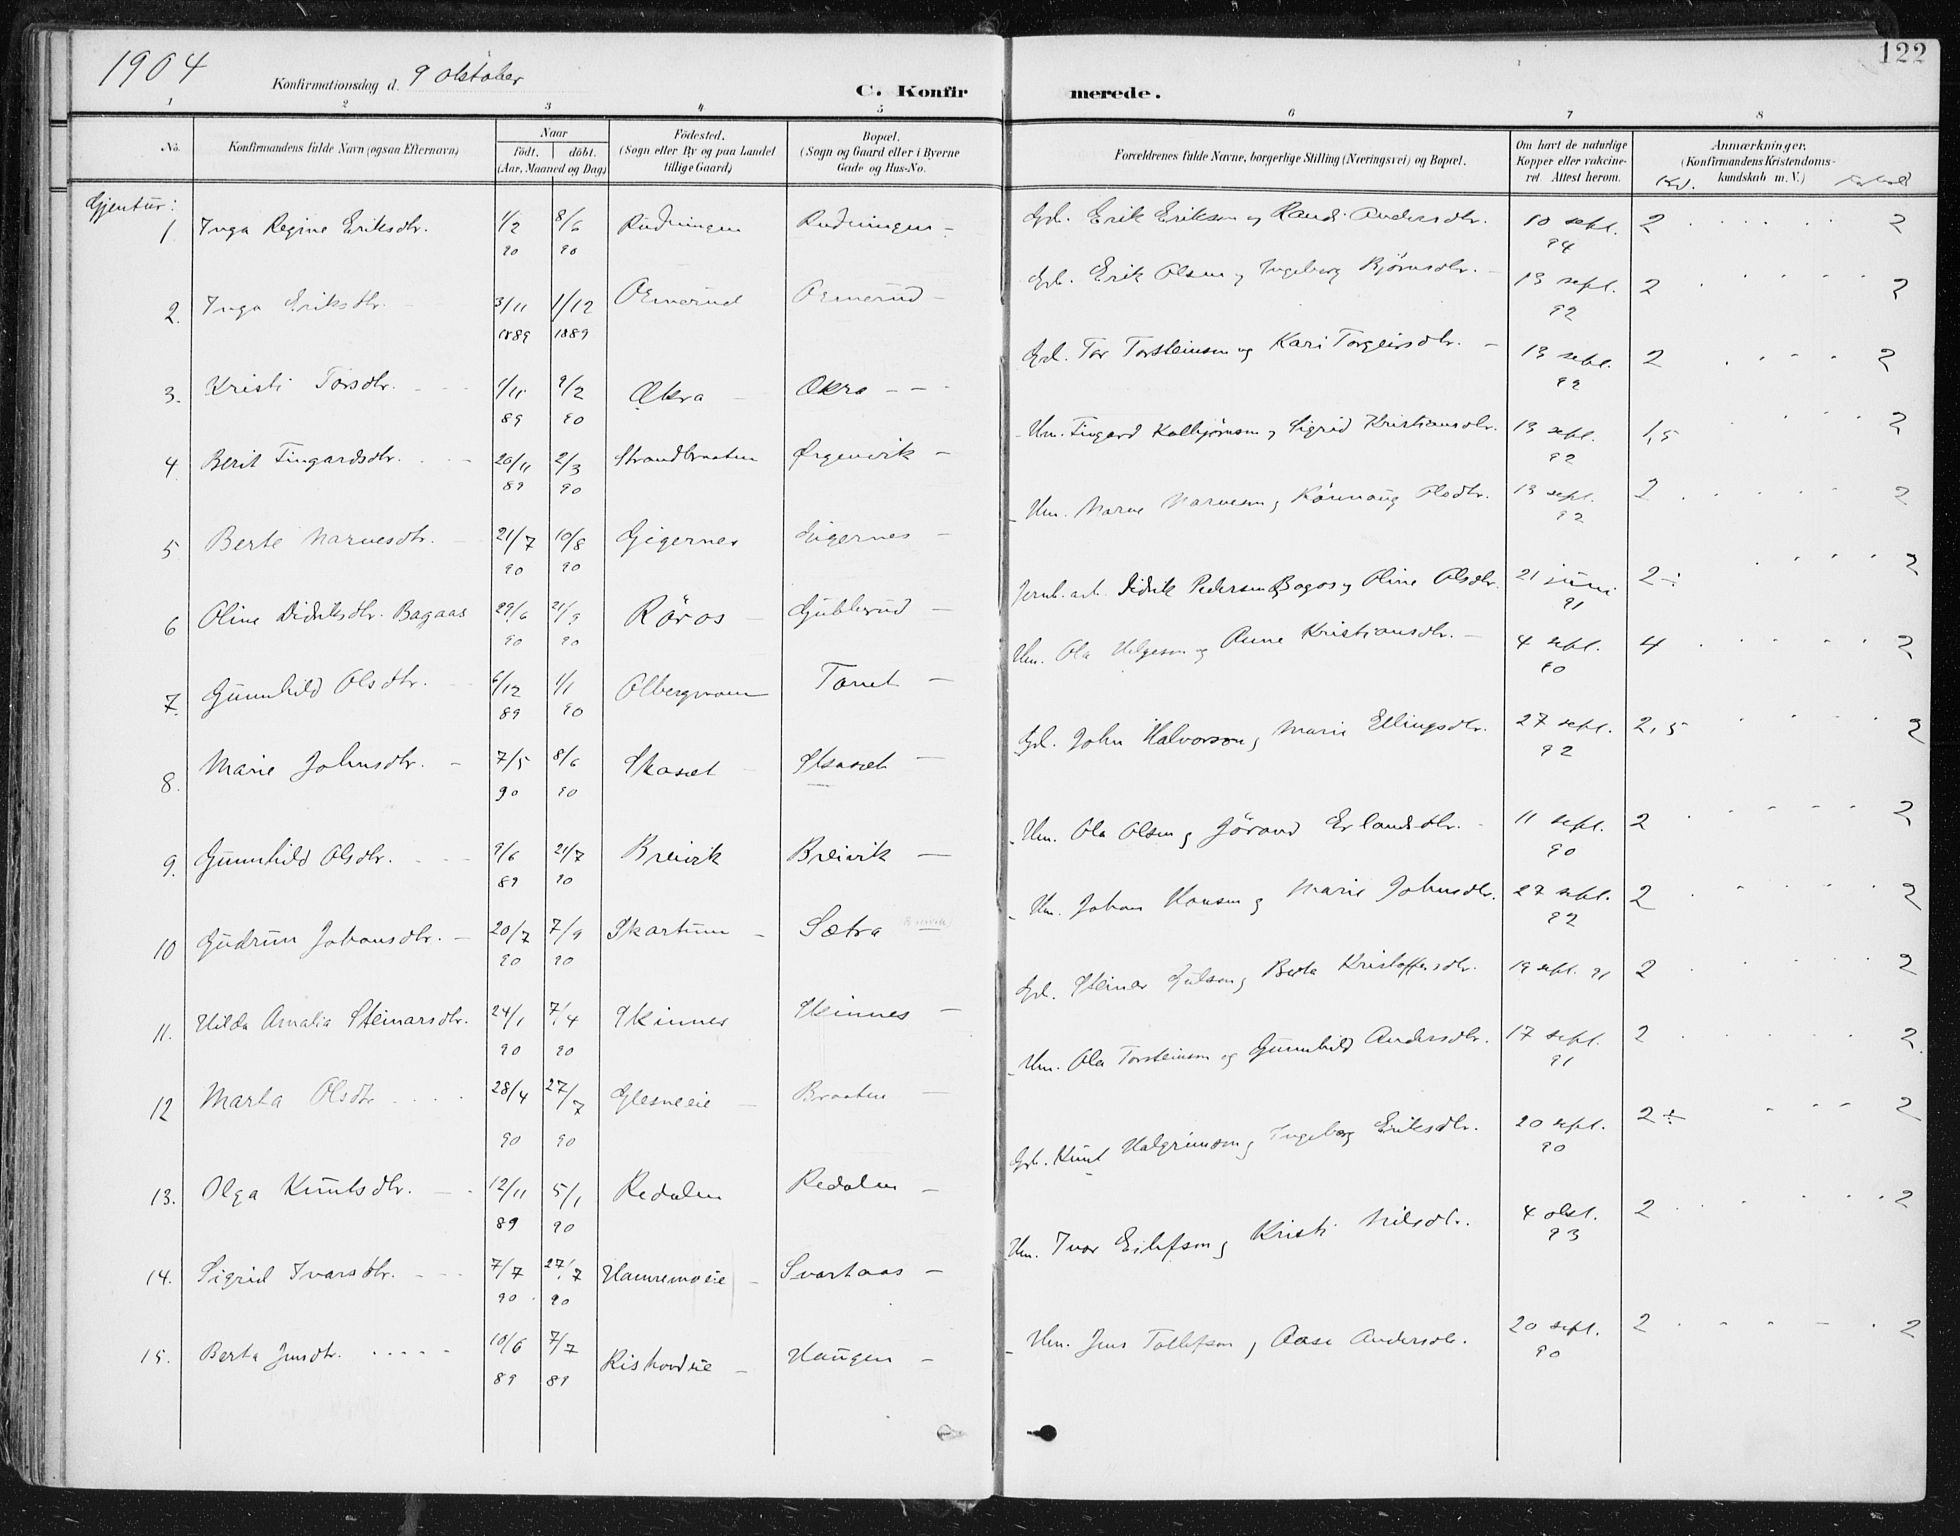 1904
Konfirmationsdag d. 9 oktober
C. Konfirmerede.
122
1 2 3 4 5 6 7 8
No. Konfirmandens fulde Navn (ogsaa Efternavn) Naar födt. döbt. (Aar, Maaned og Dag) Födested. (Sogn eller By og paa Landet tillige Gaard) Bopæl. (Sogn og Gaard eller i Byerne Gade og Hus-No. Forældrenes fulde Navne, borgerlige Stilling (Næringsvei) og Bopæl. Om havt de naturlige Kopper eller vakcineret. Attest herom. Anmærkninger. (Konfirmandens Kristendomskundskab m. V.) Kd. Forhold
Gjentur:
1. Inga Regine Eriksdtr. 1/2 90 8/6 90 Rudningen Rudningen Gbr. Erik Erikson og Randi Andersdtr. 10 sept. 94 2 2
2. Inga Eriksdtr. 3/11 1889 1/12 1889 Gbr. Erik Olsen og Ingeborg Bjørnsdtr. 13 sept. 92 2 2
3. Kristi Torsdtr. 1/11 89 9/2 90 Økra Økra Gbr. Tor Torsteinson og Kari Torgeirsdtr. 13 sept. 92 2 2
4 Berit Fingardsdtr. 20/11 89 2/3 90 Strandbraaten Ørgenvik Hm. Fingard Kolbjørnson og Sigrid Kristiansdtr. 13 sept. 92 1,5 2
5 Berte Narvesdtr. 21/7 90 10/8 90 Gigernes Gigernes Hm. Narve Narveson og Rønnaug Olsdtr. 13 sept. 92 2 2
6 Oline Didriksdtr. Bagaas 29/6 90 21/9 90 Röros Gubberud Jernb. arb. Didrik Pedersen Bagos og Oline Olsdtr. 21 juni 91 2÷ 2
7. Gunnhild Olsdtr. 6/12 89 1/1 90 Tonet Hm. Ola Helgeson og Anne Kristiansdtr. 4 sept. 90 4 2
8. Marie Johnsdtr. 7/5 90 8/6 90 Skaset Skaset Gbr. John Halvorson og Marie Ellingsdtr. 27 sept. 92 2,5 2
9. Gunnhild Olsdtr. 9/6 89 21/7 90 Breivik Breivik Hm. Ola Olsen og Jørand Erlandsdtr. 11 sept. 90 2 2
10 Gudrun Johansdtr. 20/7 90 7/9 90 Skartum Sætra Breivik Hm. Johan Hansen og Marie Johnsdtr. 27 sept. 92 2 2
11. Hilda Amalia Steinarsdtr. 24/1 90 7/4 90 Skinnes Skinnes Gbr. Steinar Gulson og Berta Kristoffersdtr. 19 sept. 91 2 2
12 Marta Olsdtr 28/4 90 27/7 90 Glesneeie Braaten Hm. Ola Torsteinson og Gunnhild Andersdtr. 17 sept. 91 2 2
13. Olga Knutsdtr. 12/11 89 5/1 90 Redalen Redalen Gbr. Knut Halgrimson og Ingeborg Eriksdtr. 20 sept. 90 2÷ 2
14. Sigrid Ivarsdtr. 7/7 90 27/7 90 Hamremoeie Svartaas Hm. Ivar Eilefson og Kristi Nilsdtr. 4 okt. 93 2 2
15. Berta Jensdtr. 10/6 89 7/7 89 Rishovdeie Haugen Hm. Jens Tollefson og Aase Andersdtr. 20 sept. 90 2 2